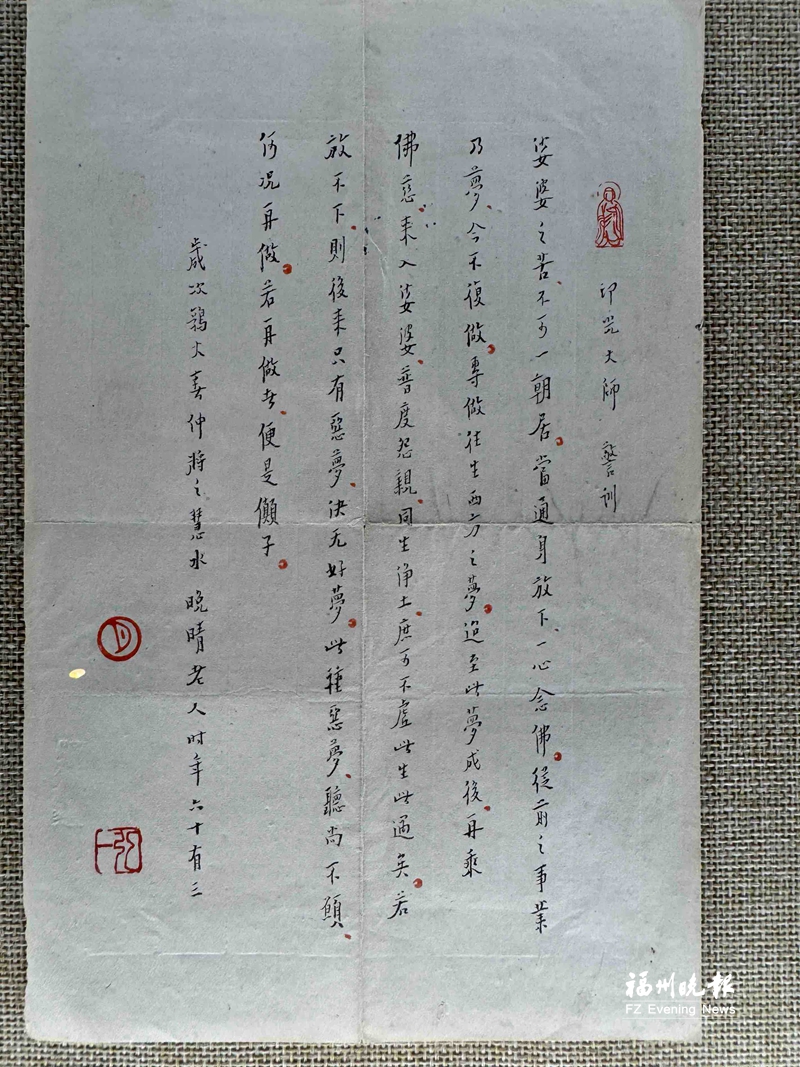 印光大師 警訓
娑婆之苦、不可一朝居。當通身放下、一心念佛。從前之事業
乃夢、今不復做。專做往生西方之夢。迨至此夢成後、再乘
佛慈、來入娑婆、普度怨親、同生淨土、庶可不虛此生此遇矣。若
放不下、則後來只有惡夢、決无好夢。此種惡夢、聽尚不願、
何況再做。若再做者、便是懶子。
歲次鶉火春仲將之慧水 晚晴老人時年六十有三
弘一
福州晚報
FZ Evening News